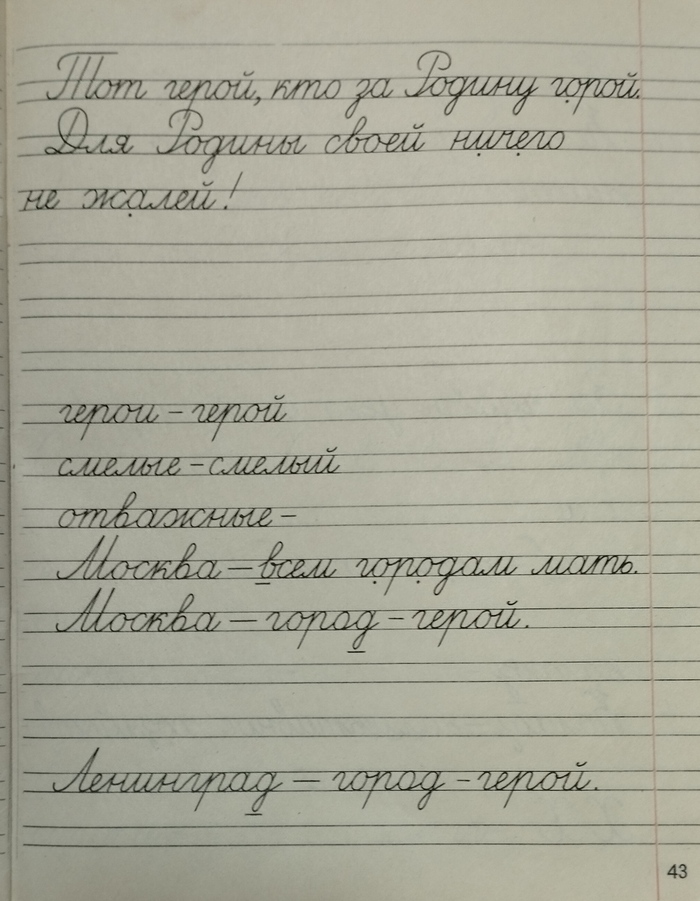 Тот герой, кто за Родину горой.
Для Родины своей ничего
не жалей!
герои – герой
смелые – смелый
отважные –
Москва – всем городам мать.
Москва – город – герой.
Ленинград – город – герой.
43